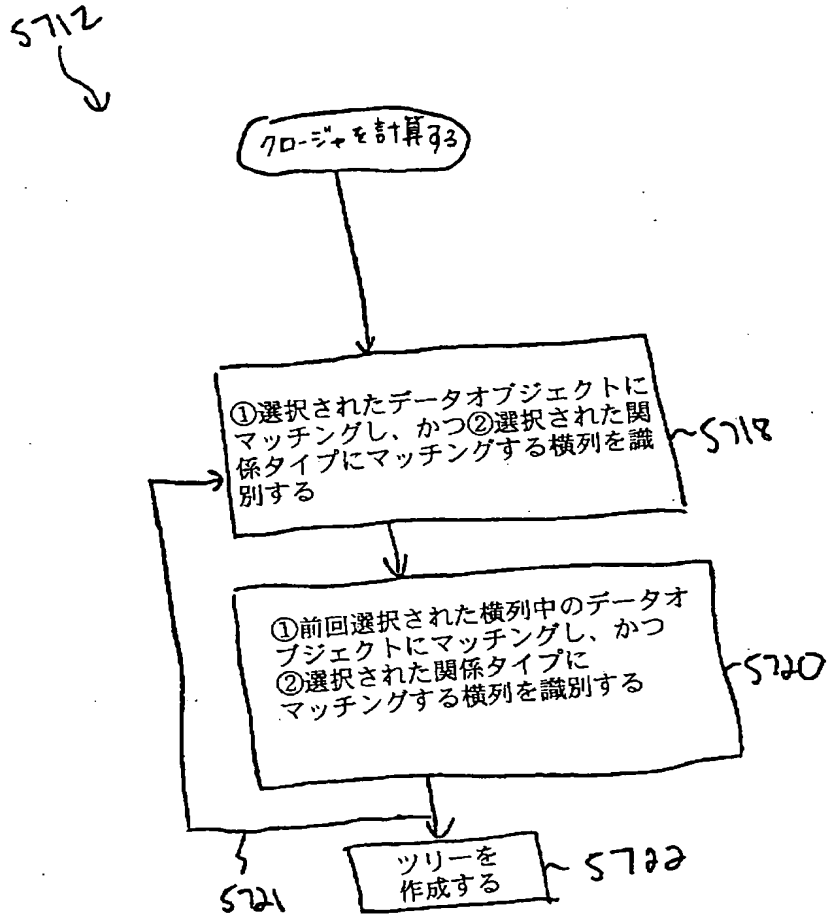 5712
クロージャを計算する
①選択されたデータオブジェクトに
マッチングし、かつ②選択された関
係タイプにマッチングする横列を識
別する
5718
①前回選択された横列中のデータオ
ブジェクトにマッチングし、かつ
②選択された関係タイプに
マッチングする横列を識別する
5720
ツリーを
作成する
5722
5721